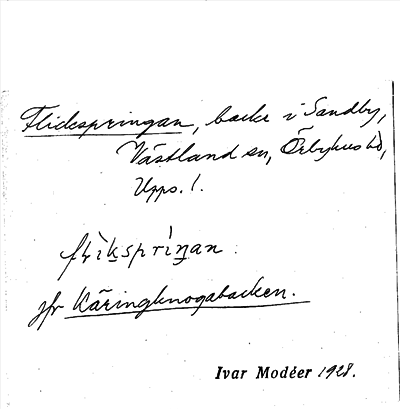 Flickspringan, backe i Sandby,
Västland sn, Örbyhus hd,
Upps. l.
flìksprìŋan.
jfr Käringknogabacken.
Ivar Modéer 1928.